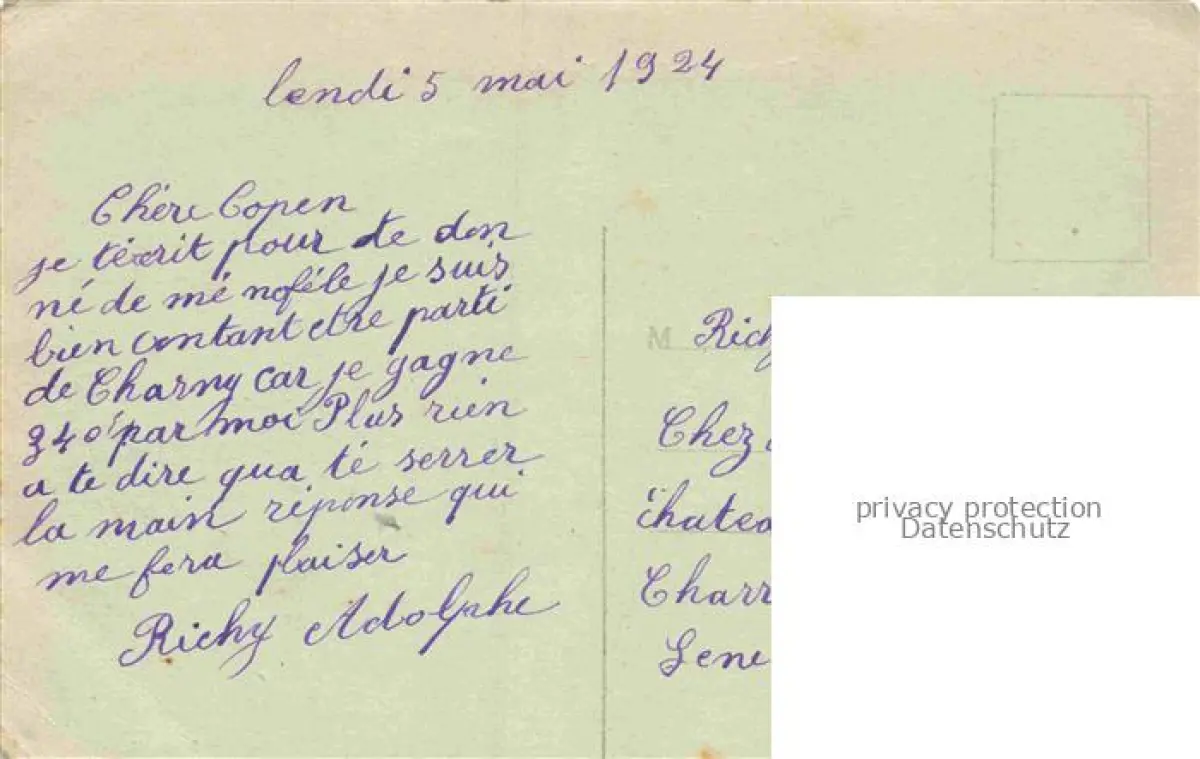 lendi 5 mai 1924
Chére Copen
je técrit pour te don
né de mé noféle je suis
bien contant etre parti
de Charny car je gagne
340f par moi Plus rien
a te dire qua té serrer
la main réponse qui
me fera plaiser
Richy Adolphe
M
Chez
Charr
privacy protection
Datenschutz